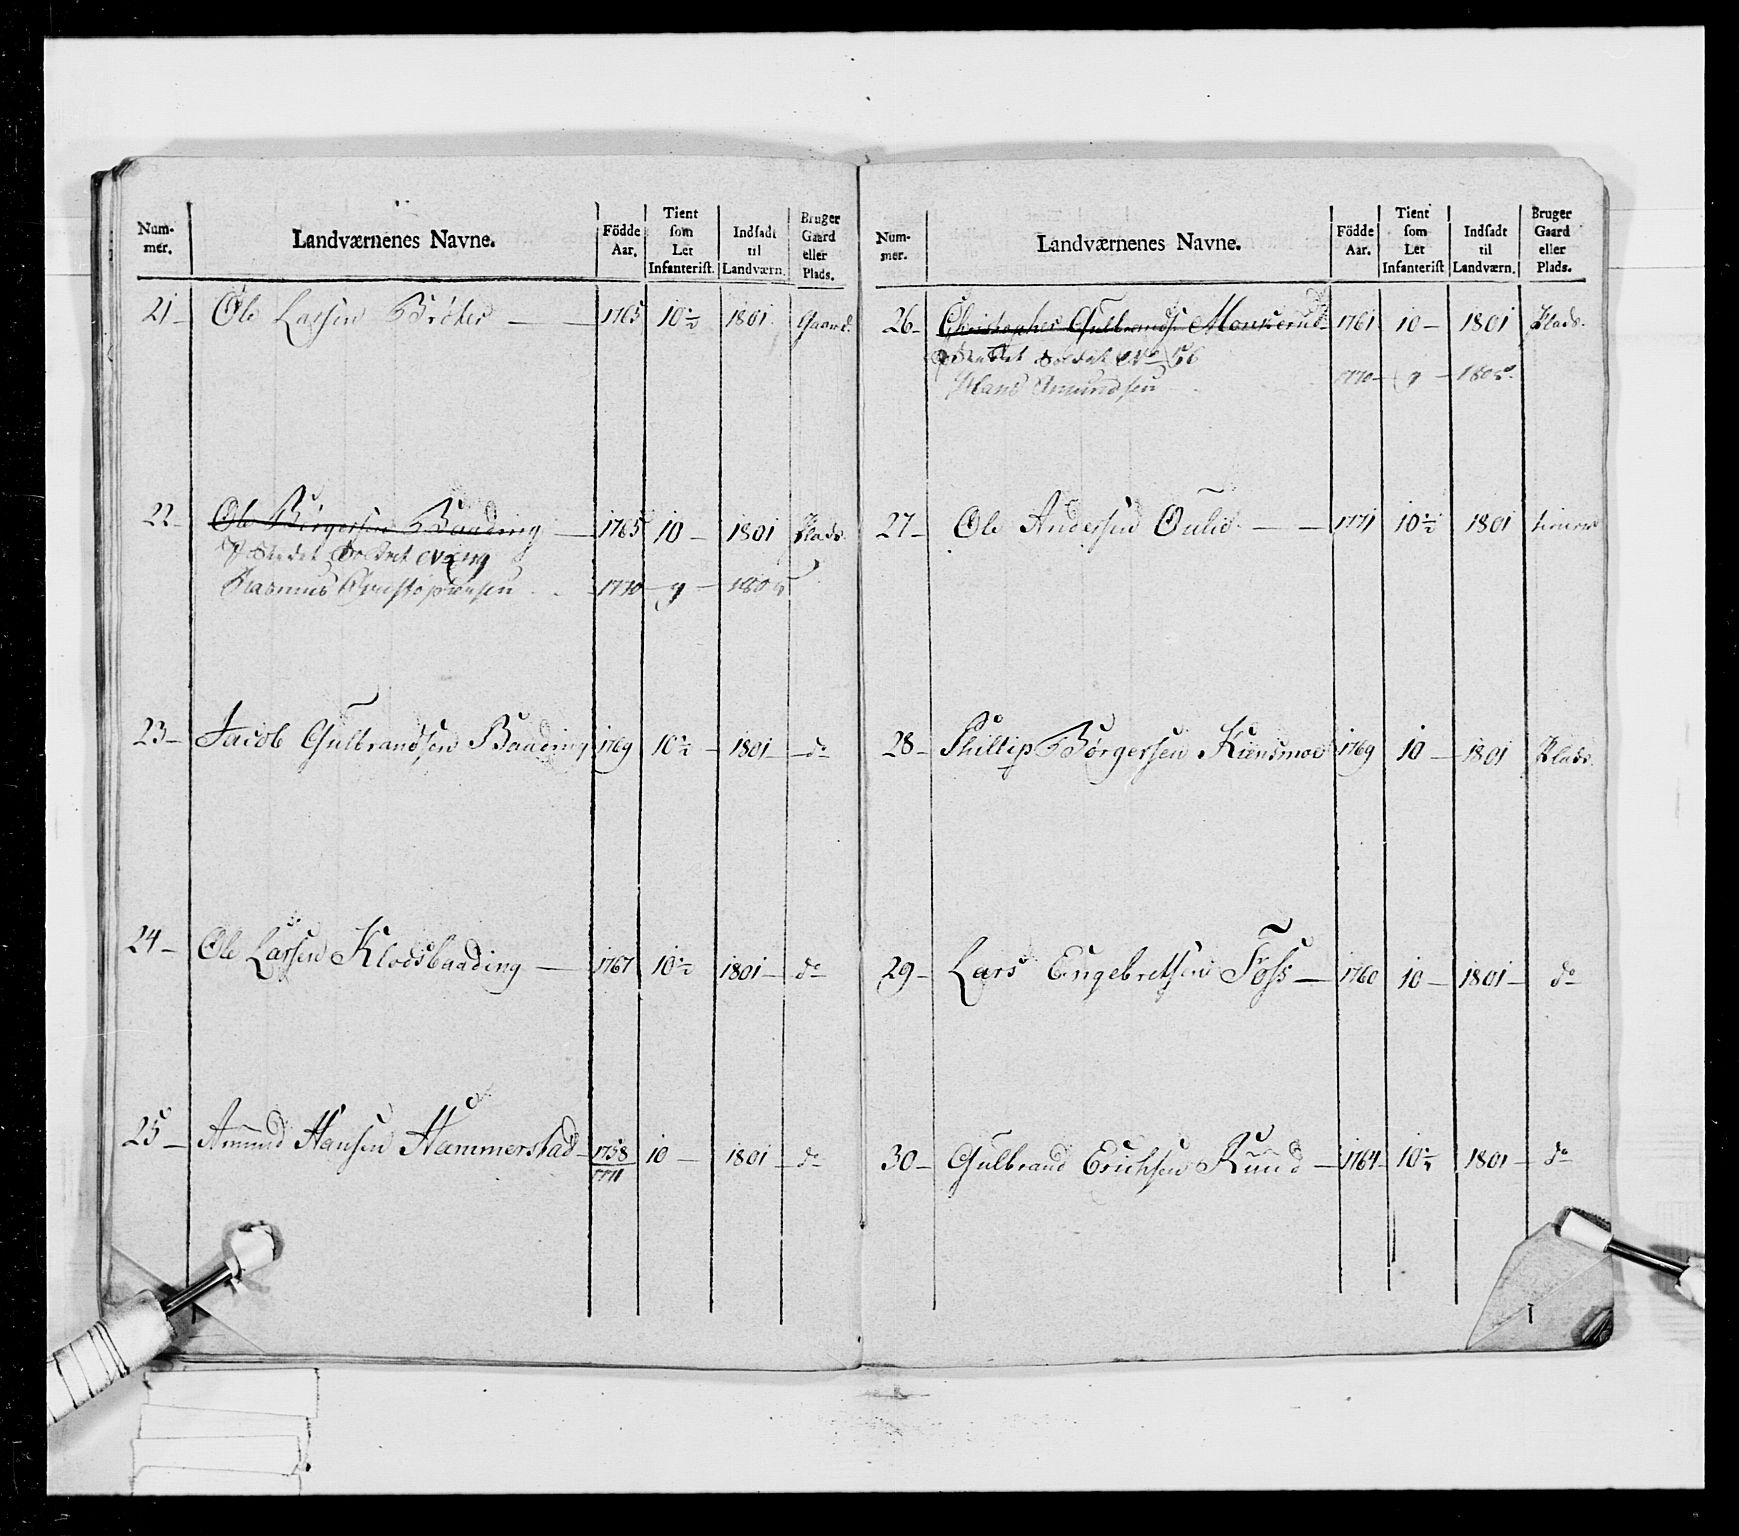 Num-
mer.
Landværnenes Navne.
Födde
Aar.
Tient
som
Let
Infanterist.
Indsadt
til
Landværn.
Bruger
Gaard
eller
Plads.
21 Ole Larsen Bröter — 1765 10½ 1801 Gaard.
22 Ole Börgersen Baading — 1765 10 — 1801 Plads
Rasmus Christophersen 1770 — 9 — 1805
23 Jacob Gulbrandsen Baading 1769 10½ — 1801 — do
24 Ole Larsen Klodsbaading — 1767 10½ 1801 — do
25 Amund Hansen Hammerstad — 1758 10 — 1801 — do
1771
Num-
mer.
Landværnenes Navne.
Födde
Aar.
Tient
som
Let
Infanterist
Indsadt
til
Landværn.
Bruger
Gaard
eller
Plads.
26 Christopher Gulbrands. Monserud 1761 10 — 1801 Plads.
Hans Amundsen 1770 — 9 — 1805.
27 Ole Andersen Oulie — 1771 10½ 1801
28 Phillip Börgersen Kiensmoe 1769 10 — 1801 Plads.
29 Lars Engebretsen Foss — 1760 10 — 1801 — do
30 Gulbrand Erichsen Ruud — 1764 10½ 1801 — do